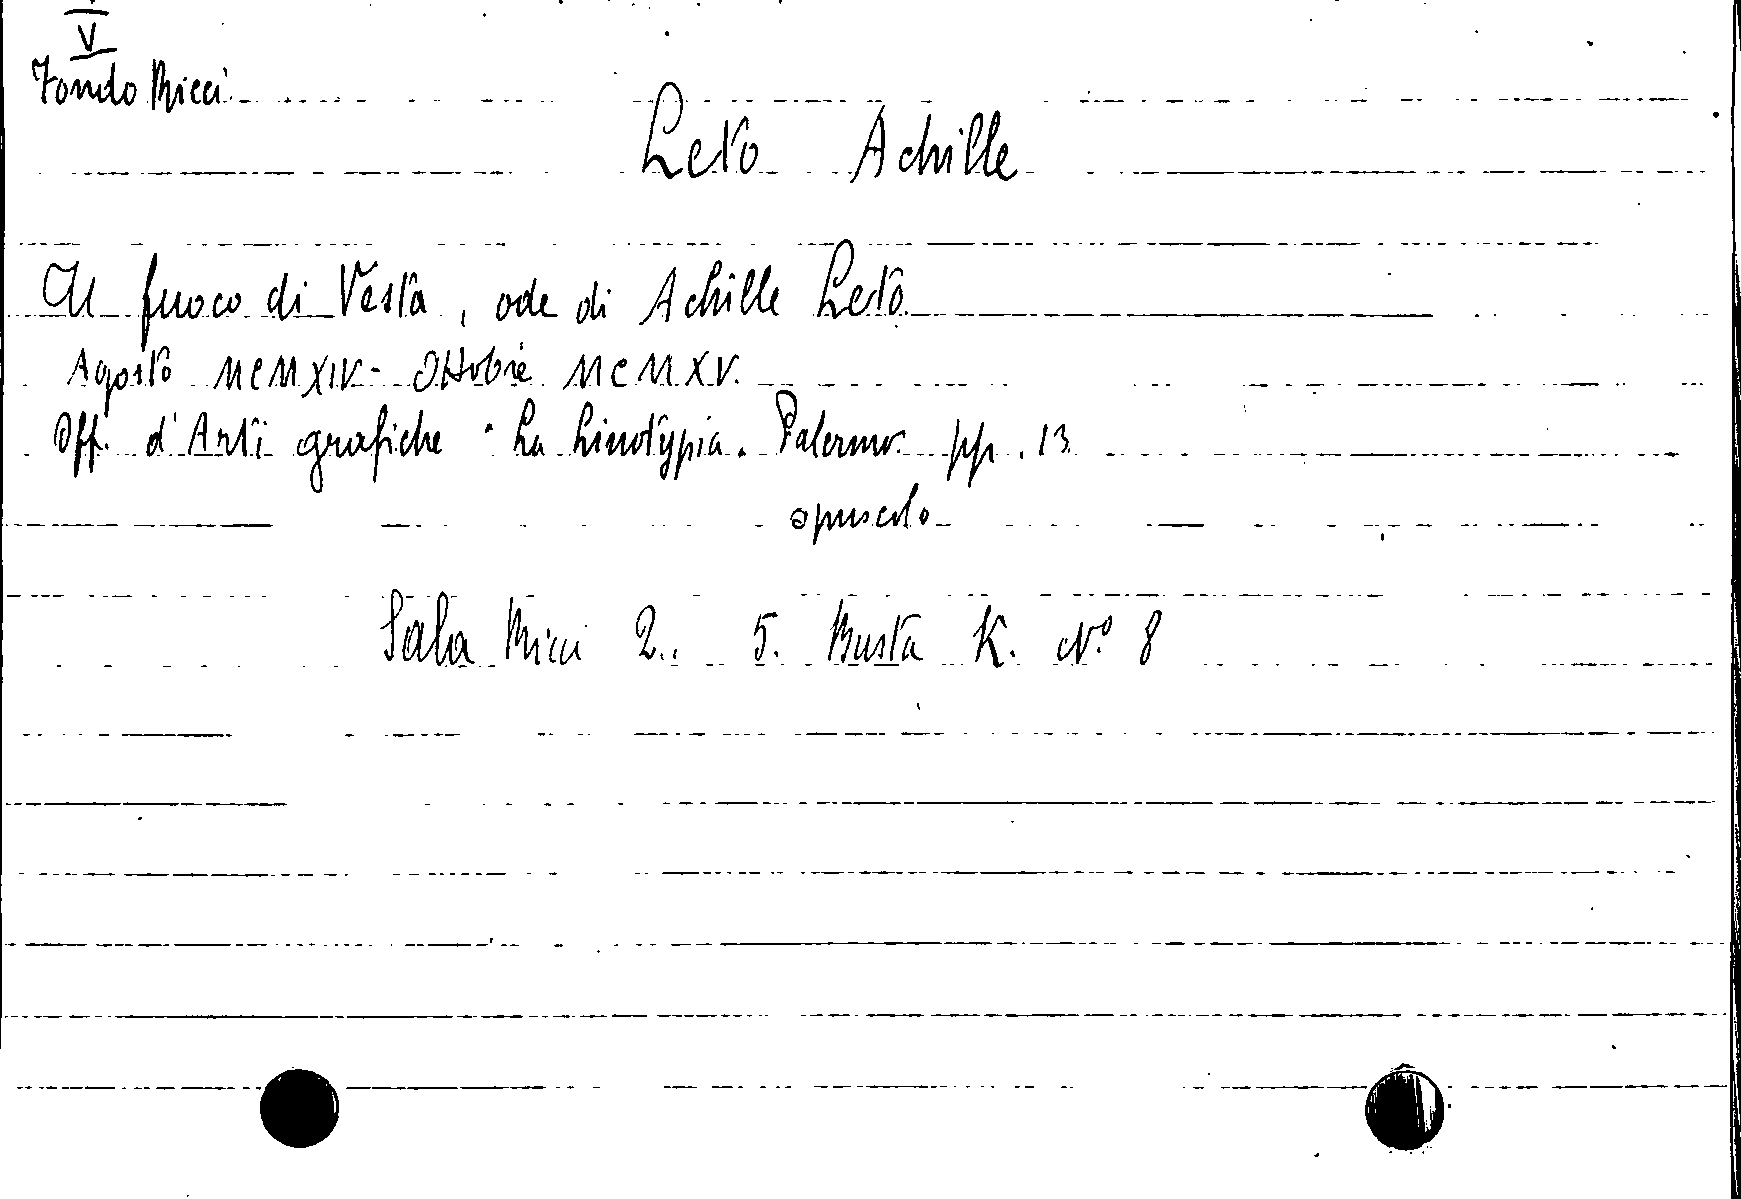 V
Fondo Ricci
Leto Achille
Il fuoco di Vesta, ode di Achille Leto.
Agosto MCMXIV - Ottobre MCMXV.
Off. d'Arti grafiche "La Linotypia. Palermo. pp. 13
opuscolo
Sala Ricci 2.. 5. Busta K. N.º 8